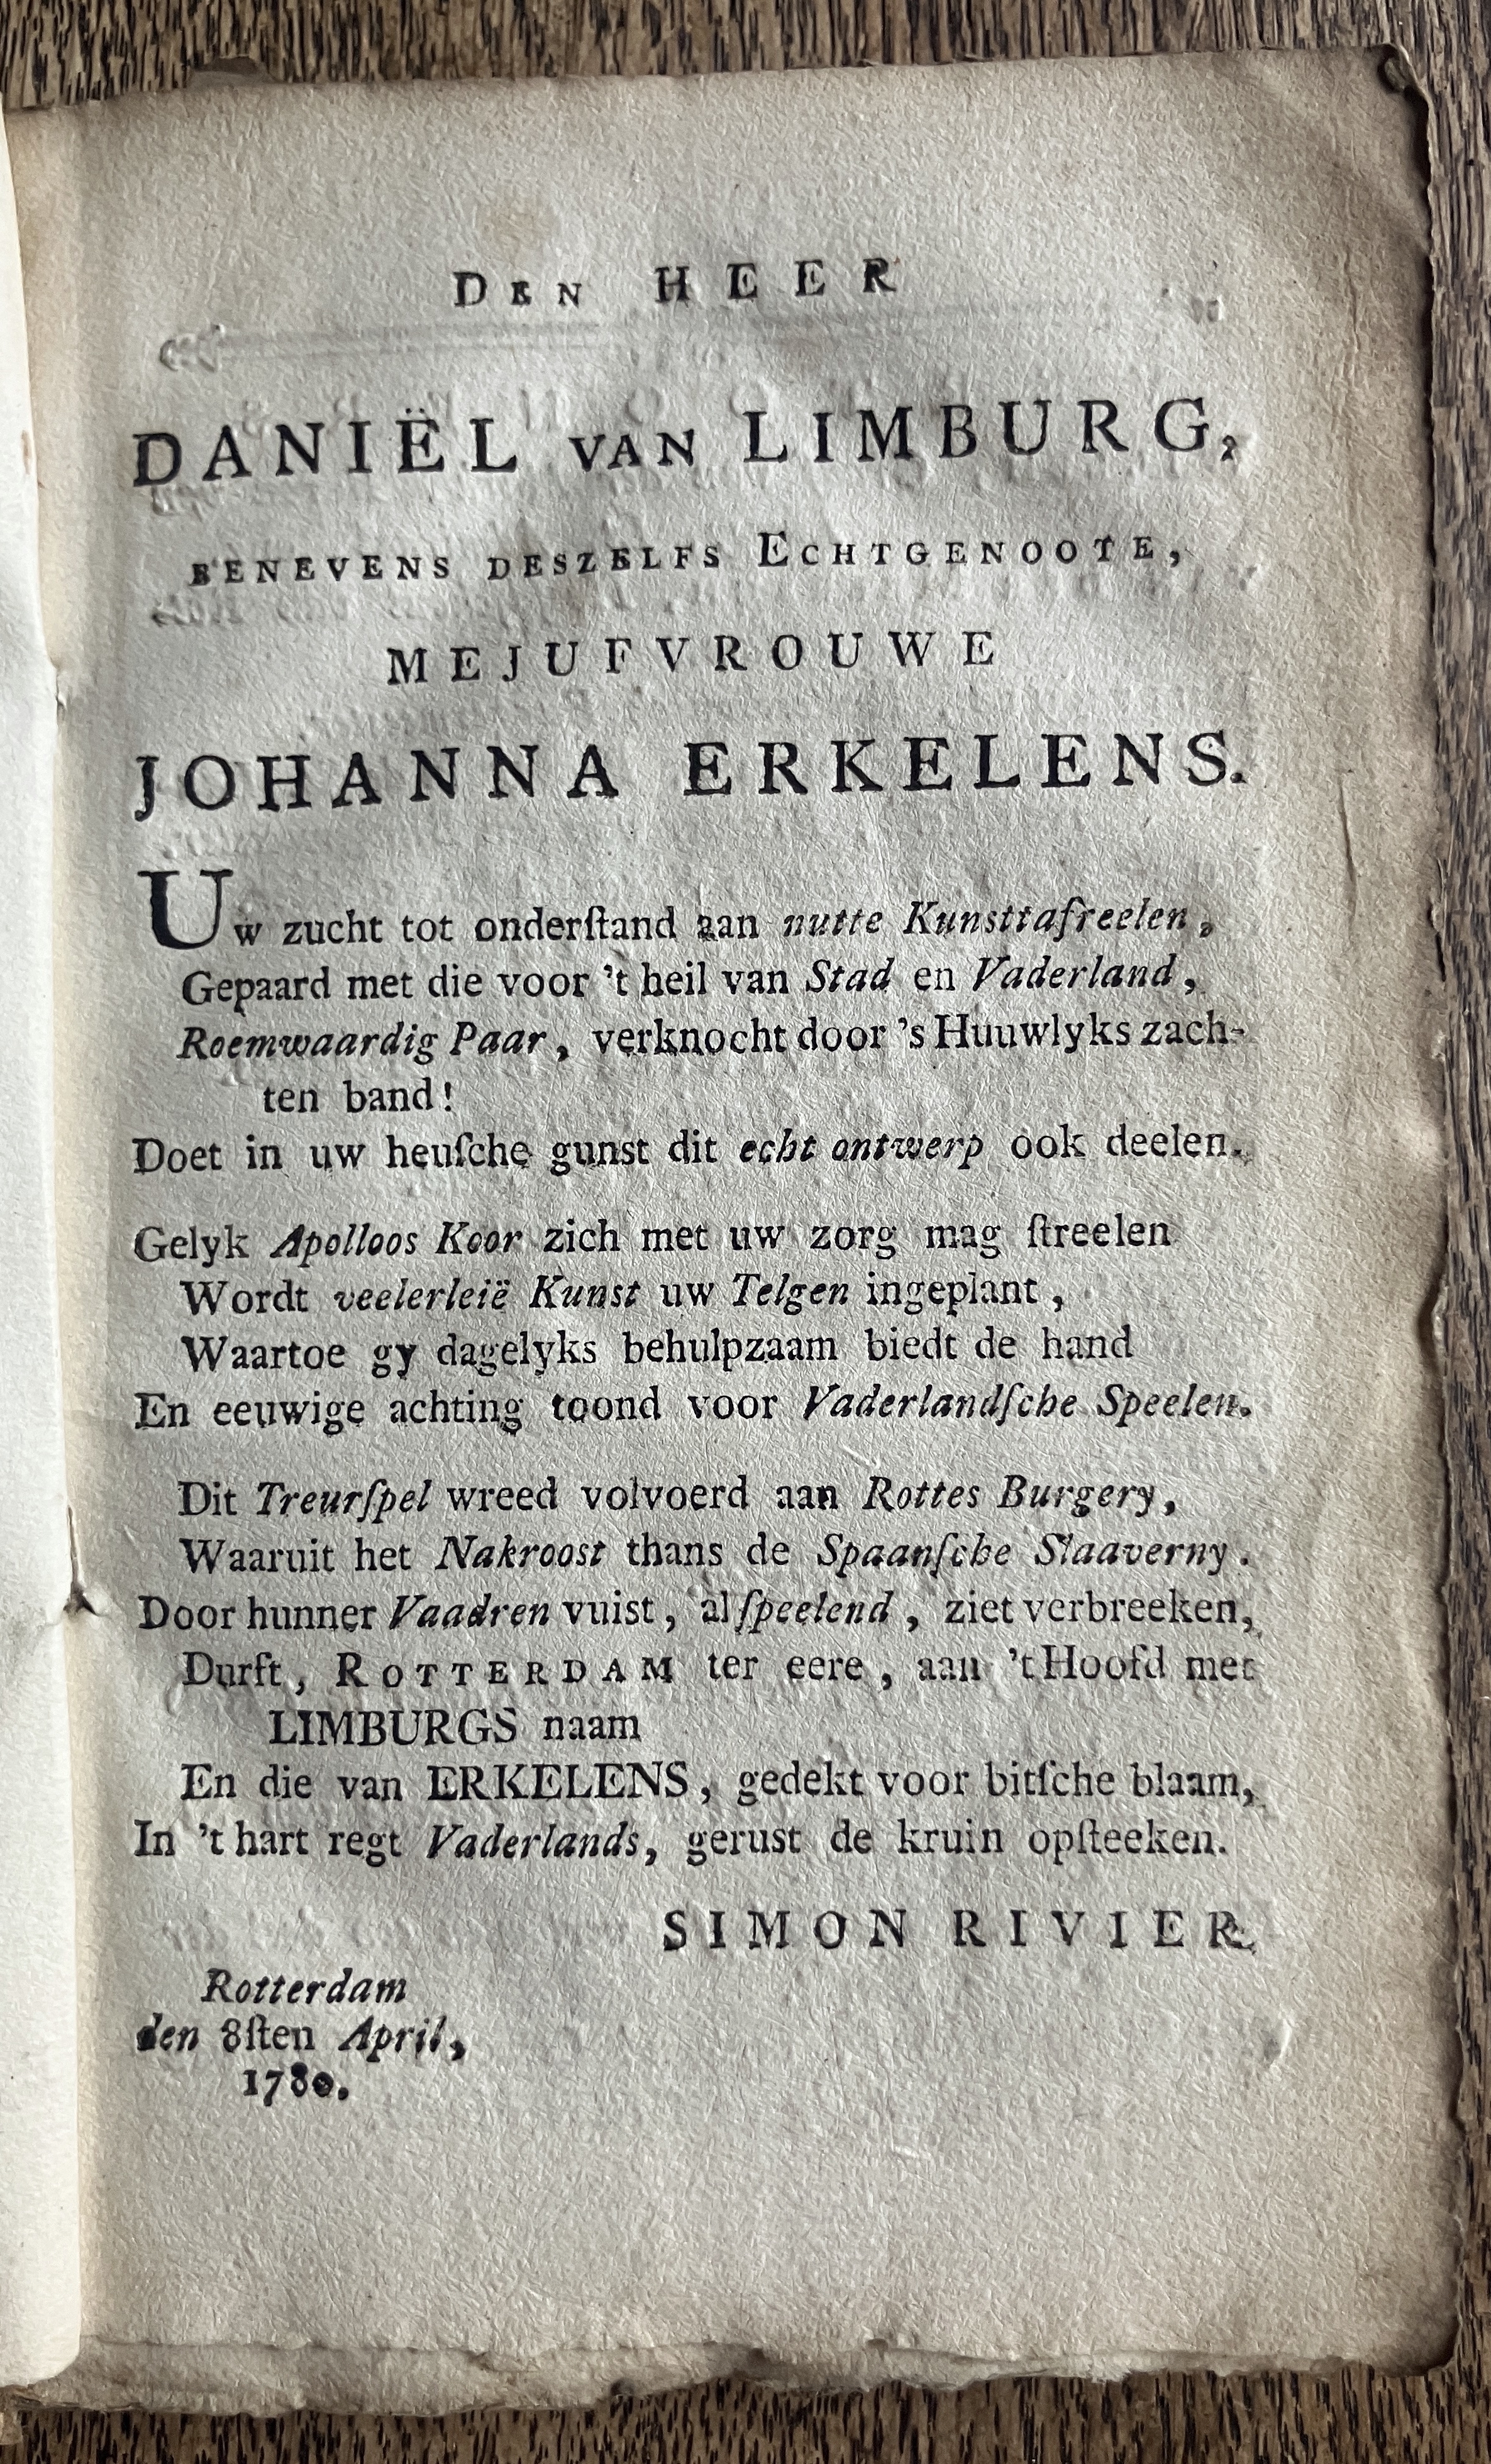 DEN HEER
DANIËL VAN LIMBURG,
BENEVENS DESZELFS ECHTGENOOTE,
MEJUFVROUWE
JOHANNA ERKELENS.
Uw zucht tot onderſtand aan nutte Kunsttafreelen,
Gepaard met die voor 't heil van Stad en Vaderland,
Roemwaardig Paar, verknocht door 's Huuwlyks zach-
ten band!
Doet in uw heuſche gunst dit echt ontwerp ook deelen.
Gelyk Apolloos Koor zich met uw zorg mag ſtreelen
Wordt veelerleië Kunst uw Telgen ingeplant,
Waartoe gy dagelyks behulpzaam biedt de hand
En eeuwige achting toond voor Vaderlandſche Speelen.
Dit Treurſpel wreed volvoerd aan Rottes Burgery,
Waaruit het Nakroost thans de Spaanſche Slaaverny.
Door hunner Vaadren vuist, al ſpeelend, ziet verbreeken,
Durft, ROTTERDAM ter eere, aan 't Hoofd met
LIMBURGS naam
En die van ERKELENS, gedekt voor bitſche blaam,
In 't hart regt Vaderlands, gerust de kruin opſteeken.
SIMON RIVIER.
Rotterdam
den 8ſten April,
1780.